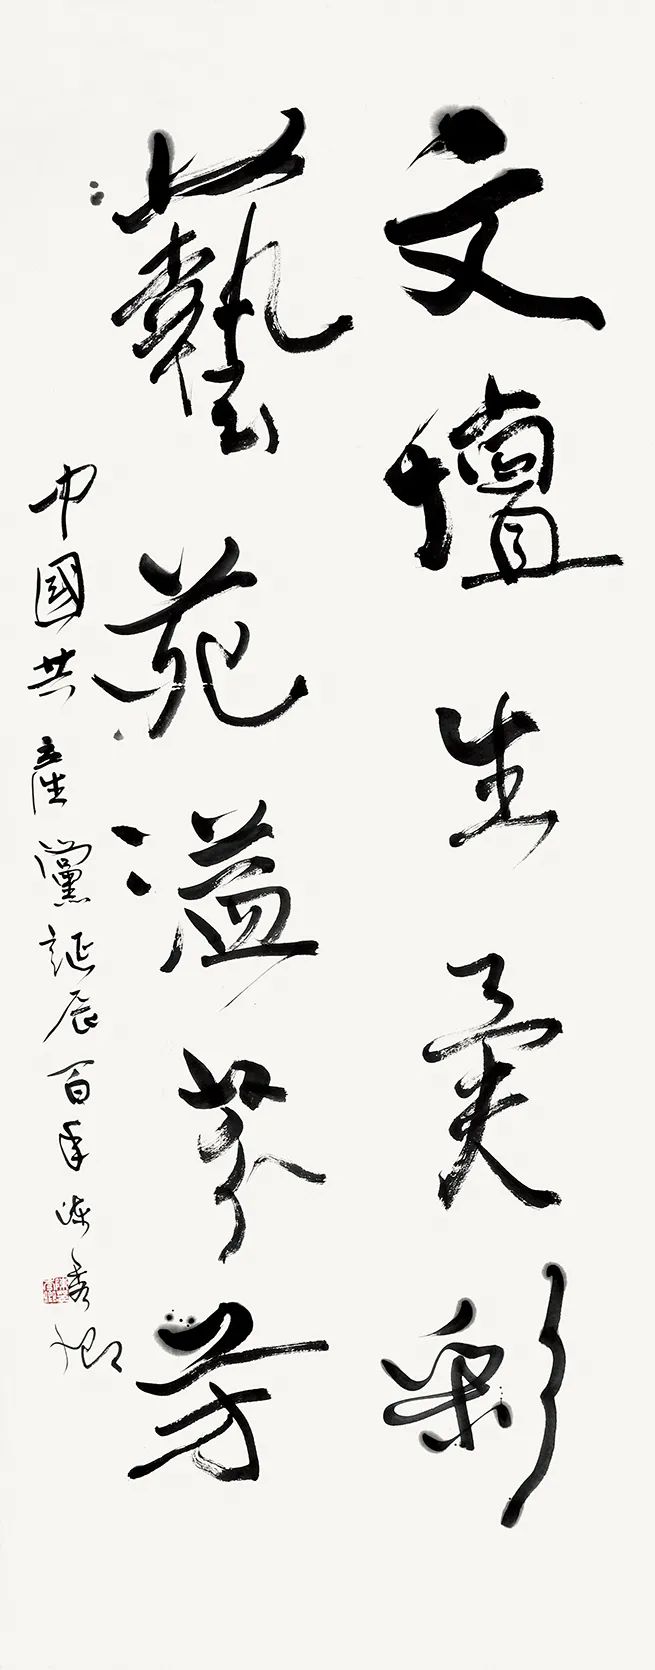 文壇生彩
藝苑溢芬芳
中國共產黨誕辰百年陳秀卿